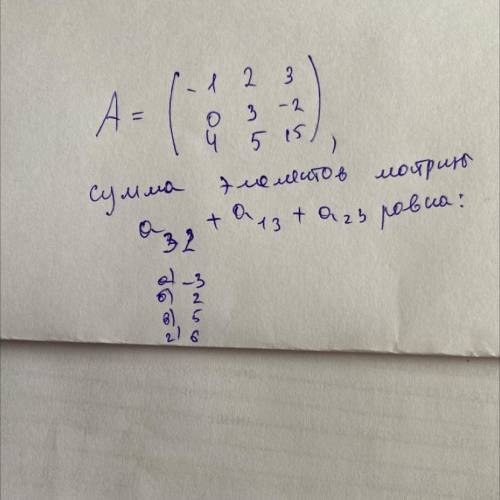 A = ( -1 2 3
0 3 -2
4 5 15 ),
сумма элементов матрицы
a32 + a13 + a23 равна:
а) -3
б) 2
в) 5
г) 6